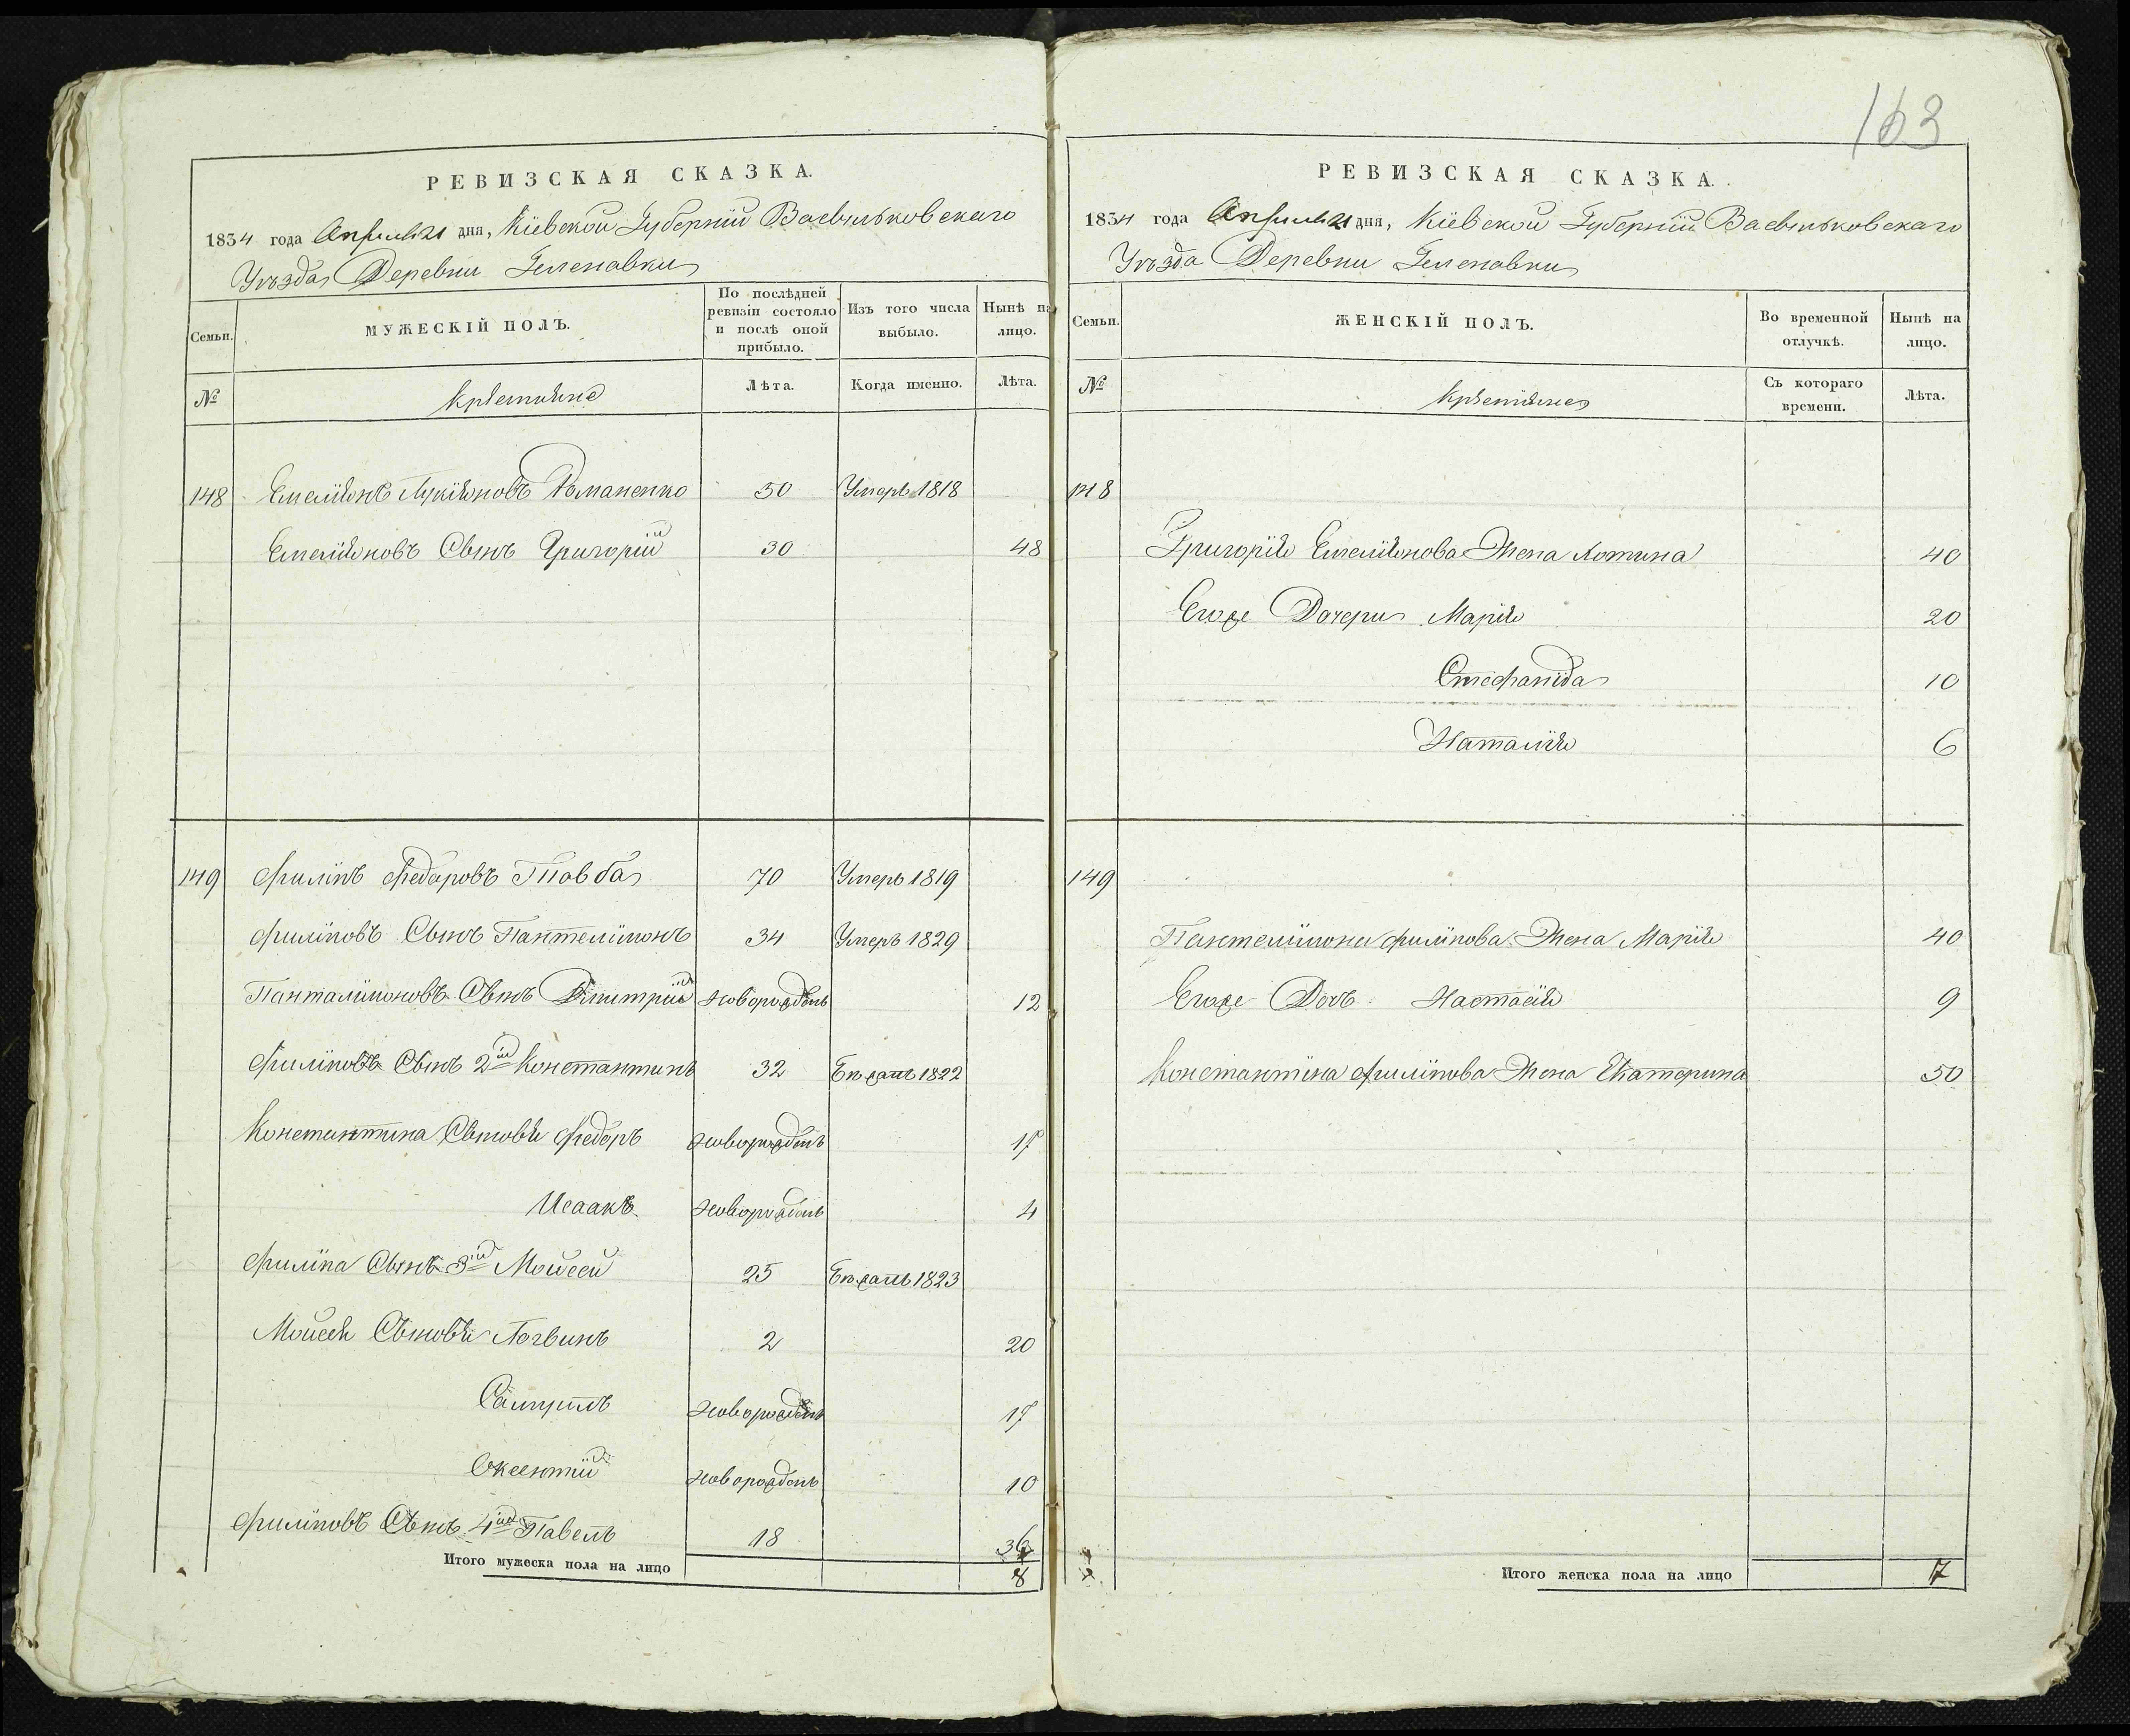 163
РЕВИЗСКАЯ СКАЗКА.
1834 года Апреля 21 дня, Кіевской Губерніи Васильковскаго
Уѣзда Деревни Геленовки
Семьи. МУЖЕСКІЙ ПОЛЪ. По послѣдней ревизіи состояло и послѣ оной прибыло. Изъ того числа выбыло. Нынѣ на лицо.
№ Крестьяне Лѣта. Когда именно. Лѣта.
148 Емеліянъ Лукіяновъ Романенко 50 Умеръ 1818
Емеліяновъ Сынъ Григорій 30 48
149 Филипъ Федоровъ 70 Умеръ 1819
Филиповъ Сынъ Пантелимонъ 34 Умеръ 1829
Панталимоновъ Сынъ Дмитрій новорожденъ 12
Филиповъ Сынъ 2й Константинъ 32 Бѣжалъ 1822
Константина Сыновья Федоръ новорожденъ 17
Исаакъ новорожденъ 4
Филипа Сынъ 3й Мойсей 25 Бѣжалъ 1823
Мойсея Сыновья Логвинъ 2 20
Самуилъ новорожденъ 17
Оксентій новорожденъ 10
Филиповъ Сынъ 4й Павелъ 18 36
Итого мужеска пола на лицо 8
РЕВИЗСКАЯ СКАЗКА.
1834 года Апреля 21 дня, Кіевской Губерніи Васильковскаго
Уѣзда Деревни Геленовки
Семьи. ЖЕНСКІЙ ПОЛЪ. Во временной отлучкѣ. Нынѣ на лицо.
№ Крестьяне Съ котораго времени. Лѣта.
148
Григорія Емеліянова Жена 40
Егоже Дочери Марія 20
Стефанида 10
Наталія 6
149
Пантелимона Филипова Жена Марія 40
Егоже Дочь Настасія 9
Константина Филипова Жена Екатерина 50
Итого женска пола на лицо 7